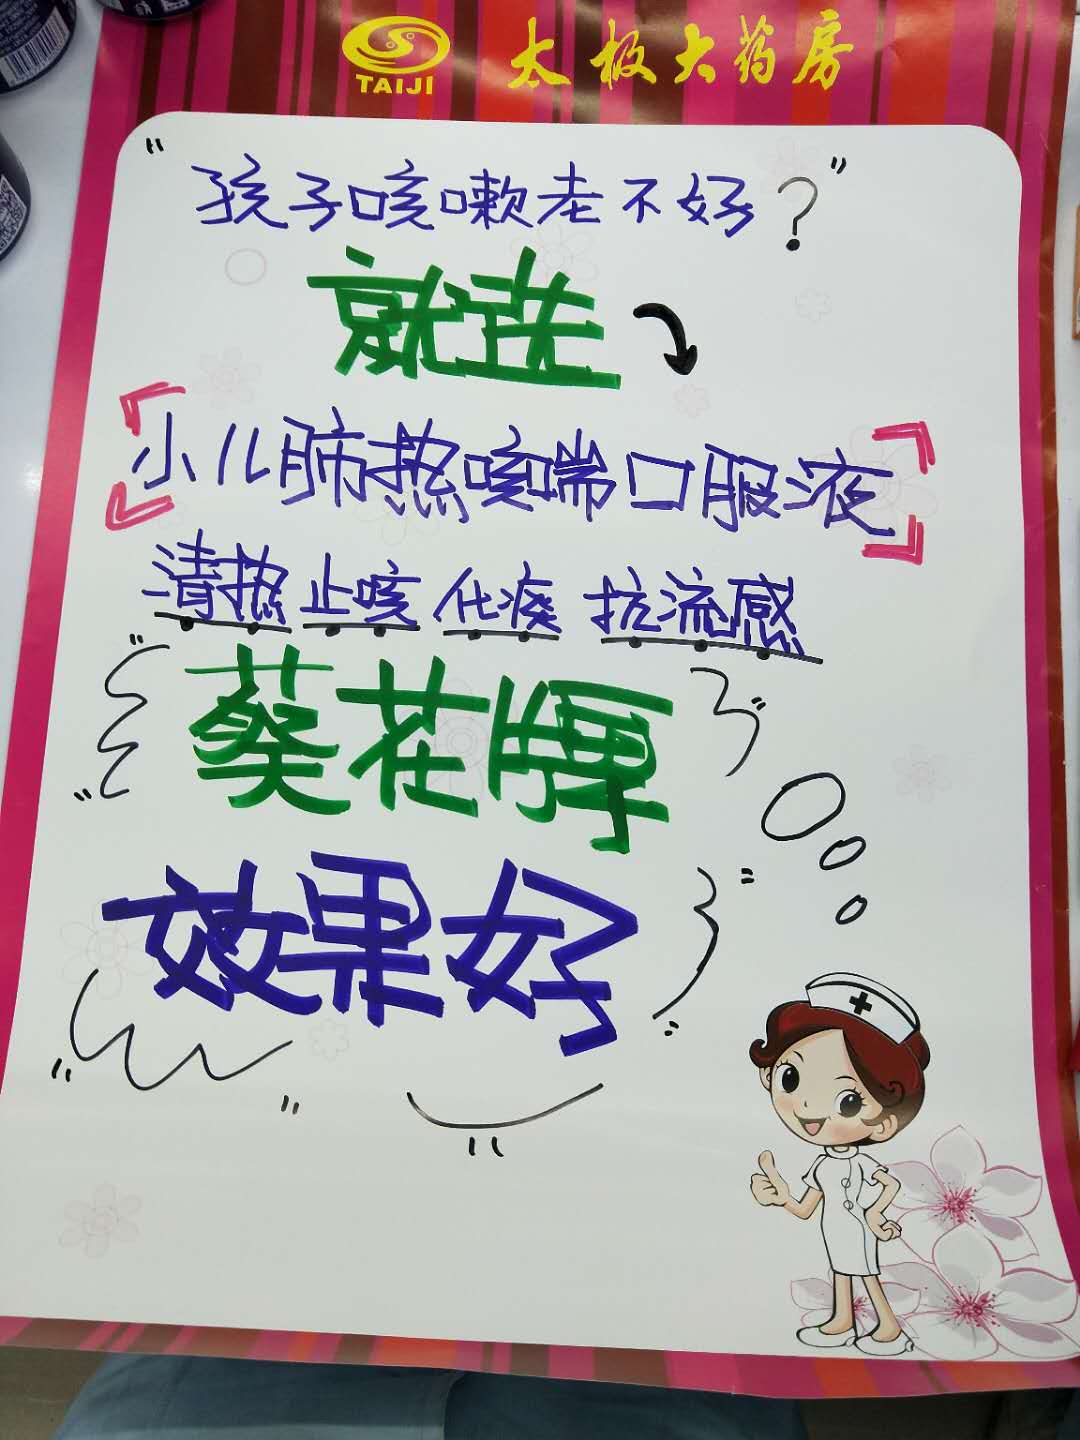 TAIJI 太极大药房
"孩子咳嗽老不好?"
就选
「小儿肺热咳喘口服液」
清热 止咳 化痰 抗流感
葵花牌
效果好